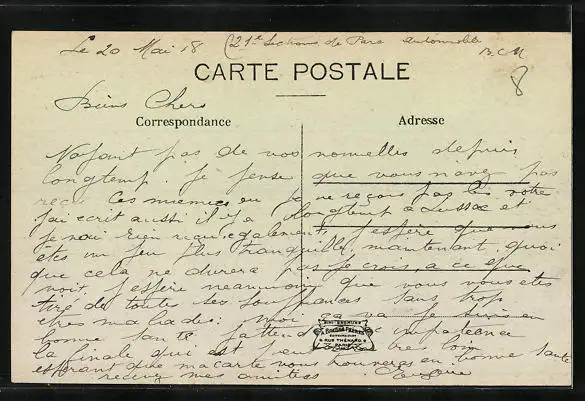 Le 20 Mai 18 (21e Sections de Parc automobile
B.C.M
8
CARTE POSTALE
Biens Chers
Correspondance
Adresse
N'ayant pas de vos nouvelles depuis
longtemp. Je pense que vous n'avez pas
reçu les miennes ou je ne reçois pas les votre
J'ai écrit aussi il y a longtemp à Lussac et
je n'ai rien reçu également. J'espère que vous
êtes un peu plus tranquille, maintenant, quoi
que cela ne durera pas je crois, a ce que
voit. J'espère néanmoins que vous vous êtes
tiré de toutes les souffrances sans trop
être malades: moi ça va je suis en
bonne santé j'attends impatience
la finale qui est peut être loin
espérant que ma carte vous trouveras en bonne santé
recevez mes amitiés
9 RUE THÉNARD 9
PARIS